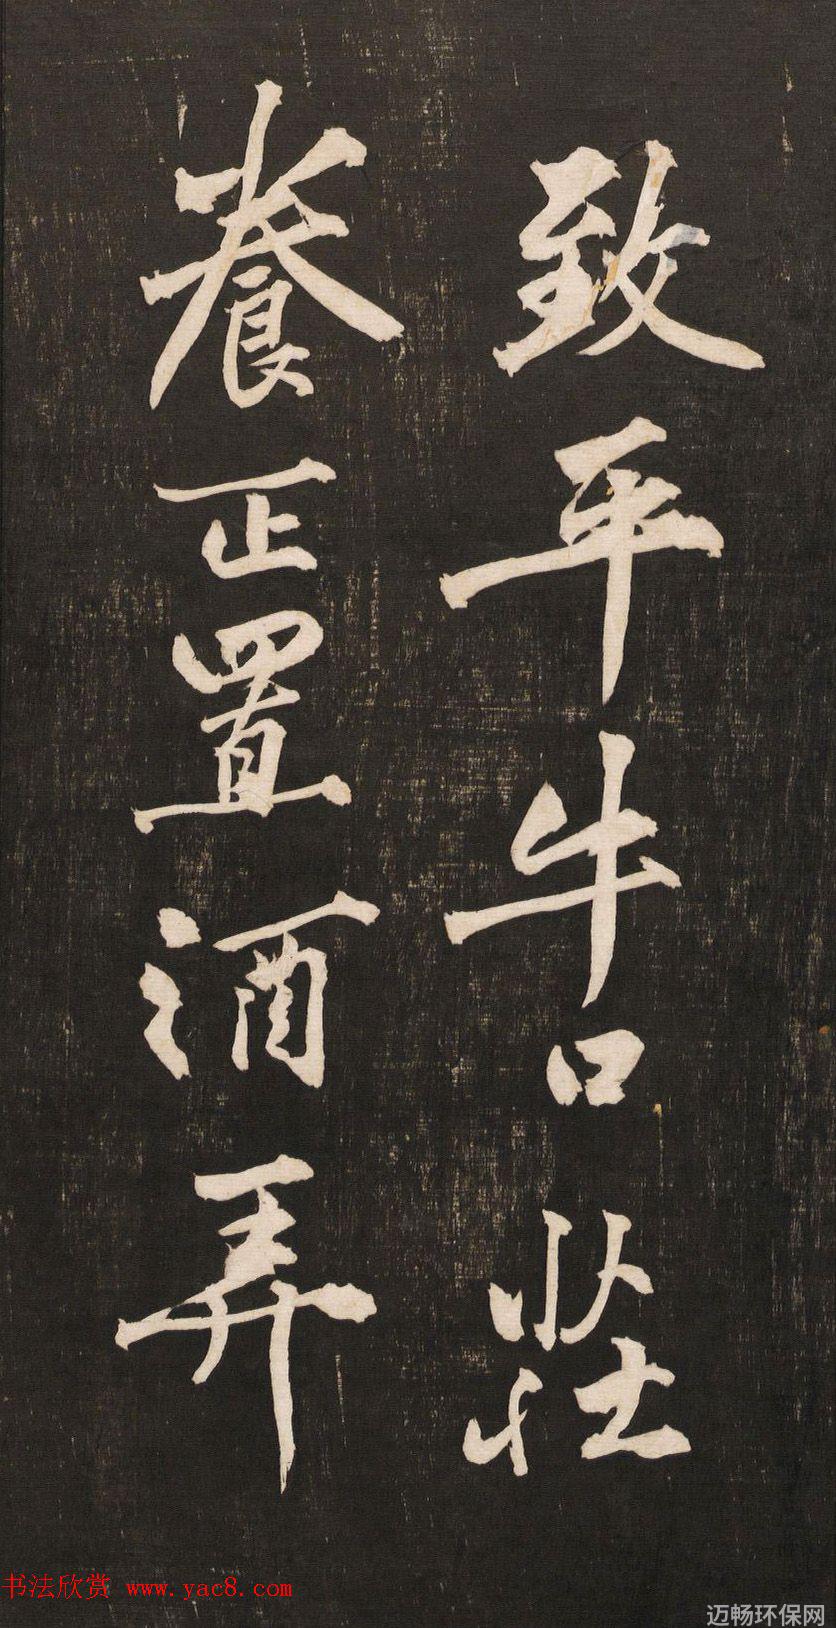 致平牛口莊
養正置酒弄
书法欣赏 www.yac8.com
迈畅环保网